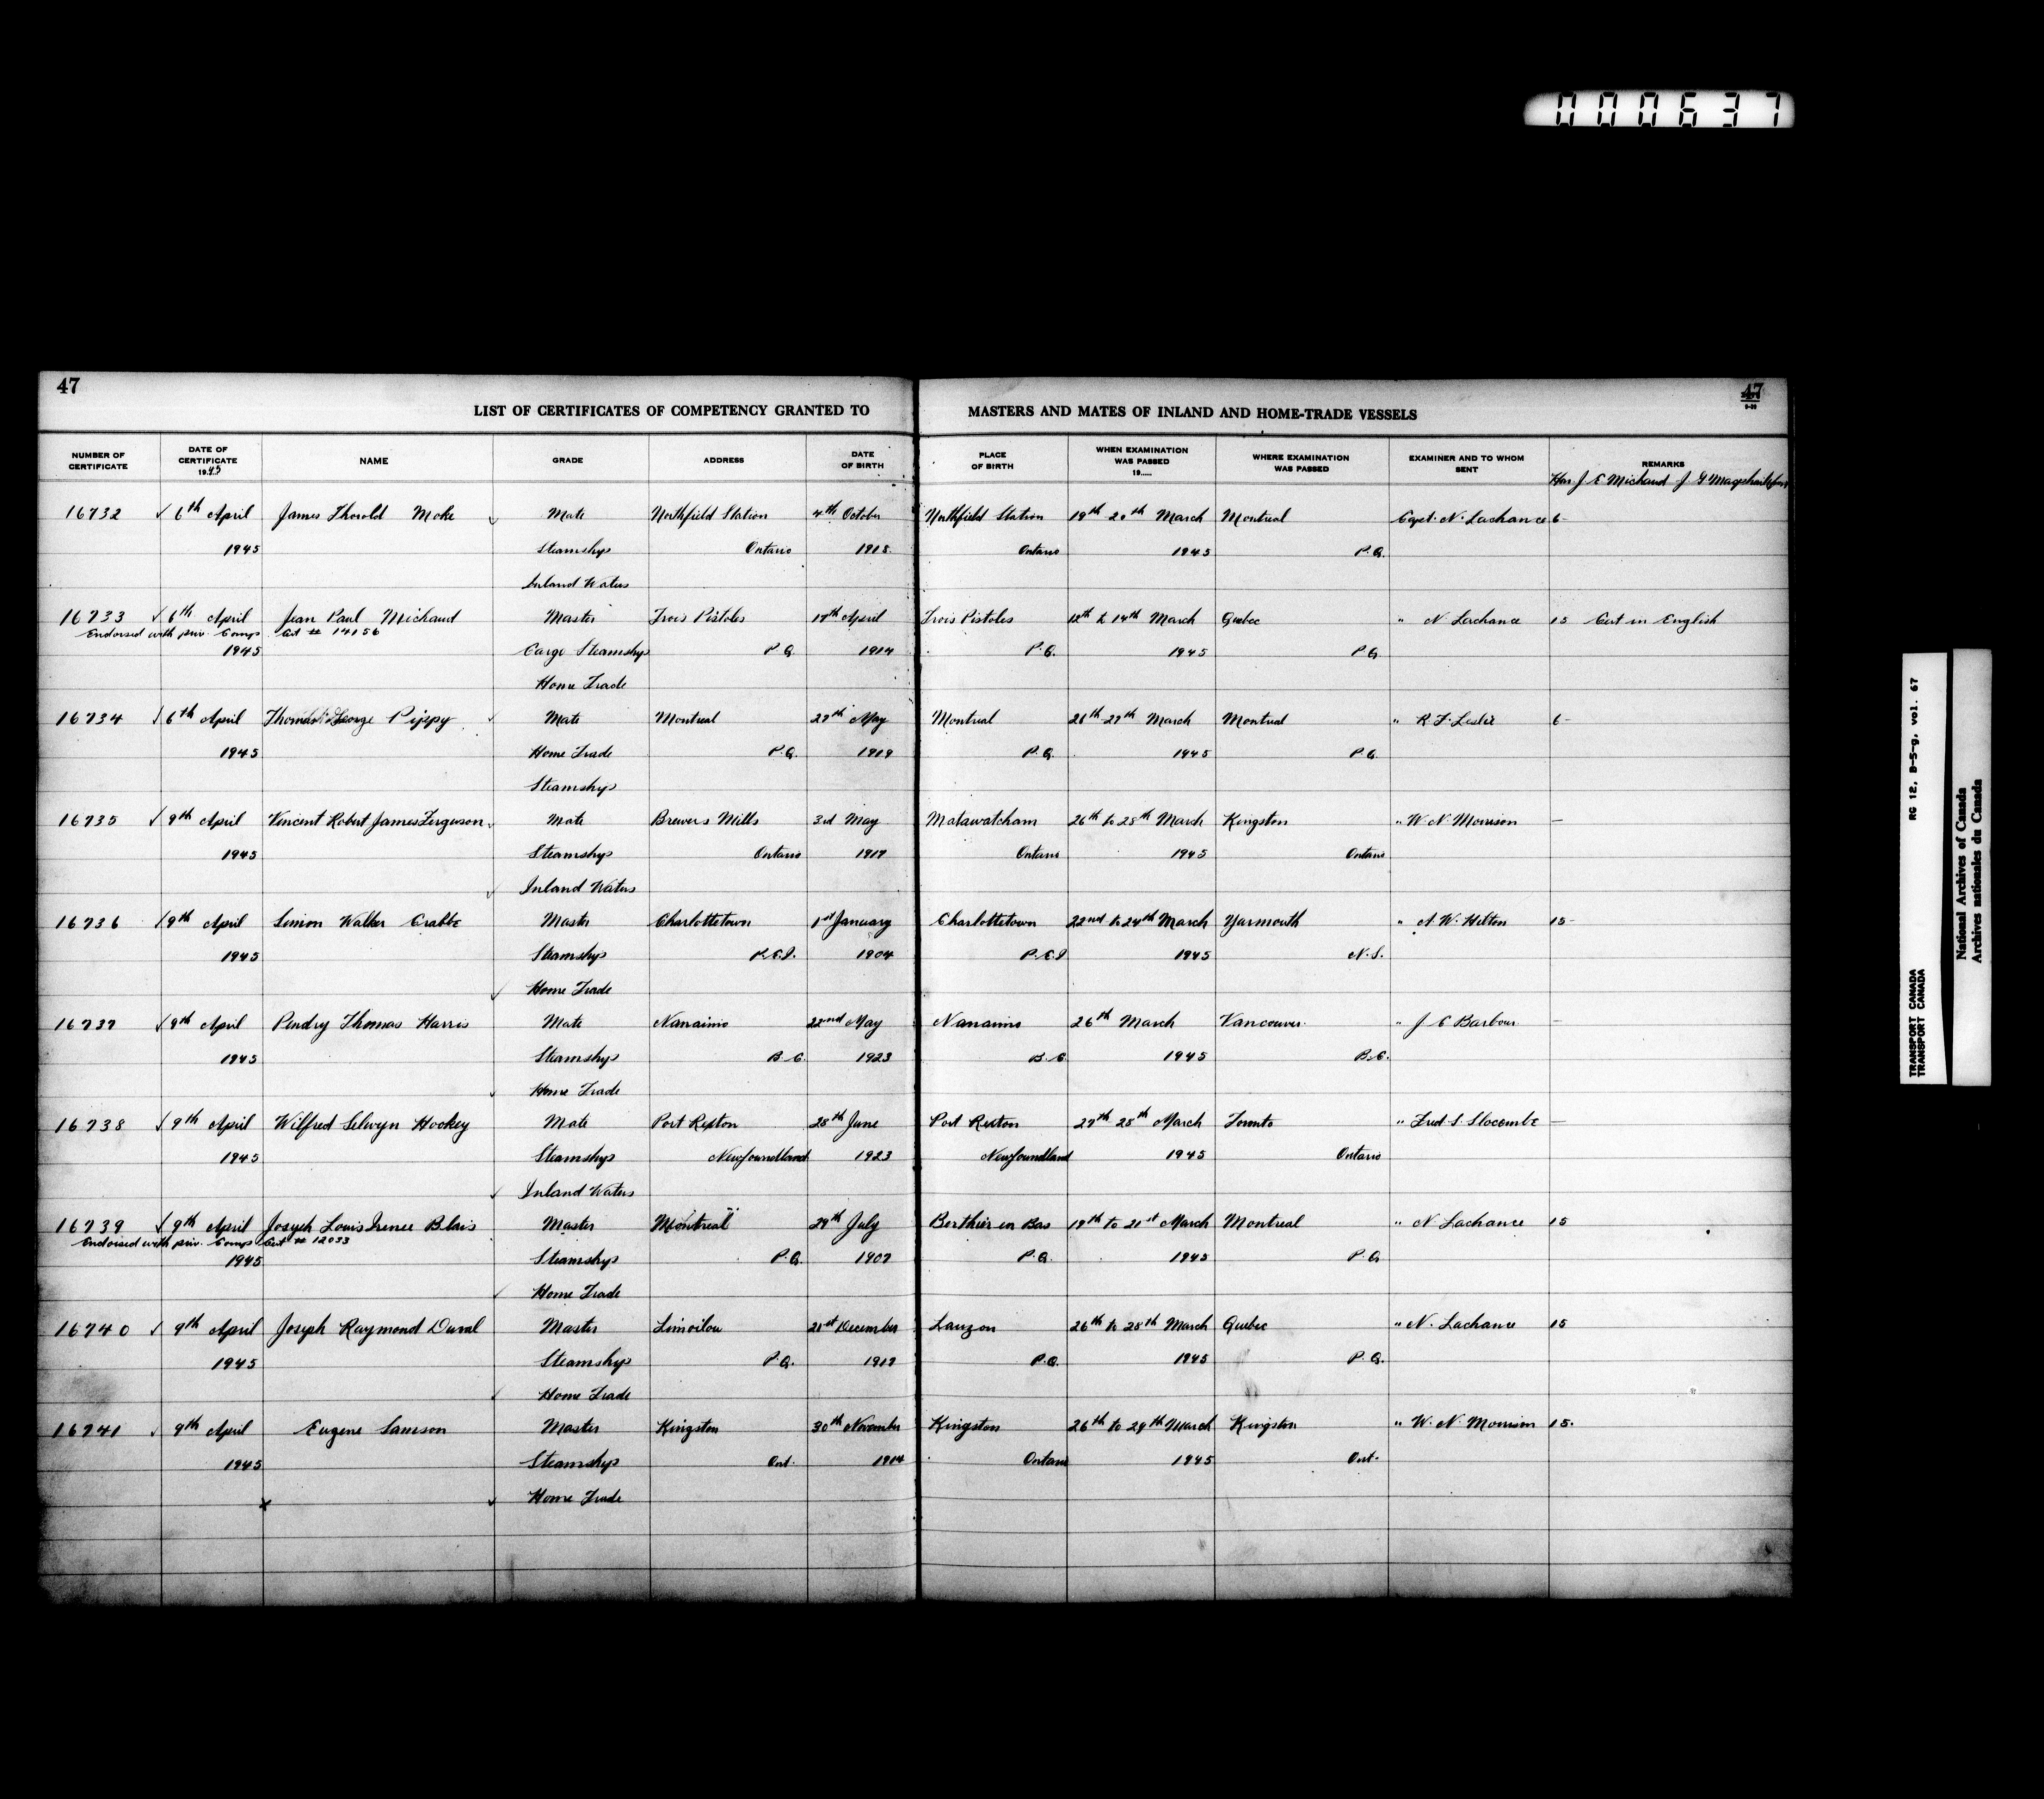 000637
47
47
LIST OF CERTIFICATES OF COMPETENCY GRANTED TO MASTERS AND MATES OF INLAND AND HOME-TRADE VESSELS
NUMBER OF CERTIFICATE DATE OF CERTIFICATE 1945 NAME GRADE ADDRESS DATE OF BIRTH PLACE OF BIRTH WHEN EXAMINATION WAS PASSED 19..... WHERE EXAMINATION WAS PASSED EXAMINER AND TO WHOM SENT REMARKS
Hon J E Michaud J G
16732 ✓ 6th April James Thorold Moke ✓ Mate Northfield Station 4th October Northfield Station 19th 20th March Montreal Capt. N. Lachance 6-
1945 Steamships Ontario 1918 Ontario 1945 P.Q.
Inland Waters
16733 ✓ 6th April Jean Paul Michaud Master Trois Pistoles 17th April Trois Pistoles 12th to 14th March Quebec " N Lachance 15 Cert in English
Endorsed with priv. Comps Cert # 14156
1945 Cargo Steamships P.Q. 1914 P.Q. 1945 P.Q.
Home Trade
16734 ✓ 6th April Thomas George Pippy ✓ Mate Montreal 27th May Montreal 26th-27th March Montreal " R.F. Leslie 6-
1945 Home Trade P.Q. 1919 P.Q. 1945 P.Q.
Steamships
16735 ✓ 9th April Vincent Robert James Ferguson ✓ Mate Brewers Mills 3rd May Matawatcham 26th to 28th March Kingston " W. N. Morrison —
1945 Steamships Ontario 1917 Ontario 1945 Ontario
✓ Inland Waters
16736 ✓ 9th April Simon Walker Crabbe Master Charlottetown 1st January Charlottetown 22nd to 24th March Yarmouth " A. W. Hilton 15-
1945 Steamships P.E.I. 1904 P.E.I 1945 N.S.
✓ Home Trade
16737 ✓ 9th April Pendry Thomas Harris Mate Nanaimo 22nd May Nanaimo 26th March Vancouver " J E Barbour —
1945 Steamships B.C. 1923 B.C. 1945 B.C.
✓ Home Trade
16738 ✓ 9th April Wilfred Selwyn Hookey Mate Port Rexton 28th June Port Rexton 27th 28th March Toronto " Fred S. Slocombe —
1945 Steamships Newfoundland 1923 Newfoundland 1945 Ontario
✓ Inland Waters
16739 ✓ 9th April Joseph Louis Irenee Blais Master Montreal 29th July Berthier en Bas 19th to 21st March Montreal " N Lachance 15
Endorsed with priv. Comps Cert # 12033
1945 Steamships P.Q. 1907 P.Q. 1945 P.Q
✓ Home Trade
16740 ✓ 9th April Joseph Raymond Duval Master Limoilou 21st December Lauzon 26th to 28th March Quebec " N. Lachance 15
1945 Steamships P.Q. 1919 P.Q. 1945 P.Q.
✓ Home Trade
16741 ✓ 9th April Eugene Samson Master Kingston 30th November Kingston 26th to 29th March Kingston " W. N. Morrison 15.
1945 Steamships Ont. 1914 Ontario 1945 Ont.
x ✓ Home Trade
RG 12, B-5-g, vol. 67
TRANSPORT CANADA
TRANSPORT CANADA
National Archives of Canada
Archives nationales du Canada